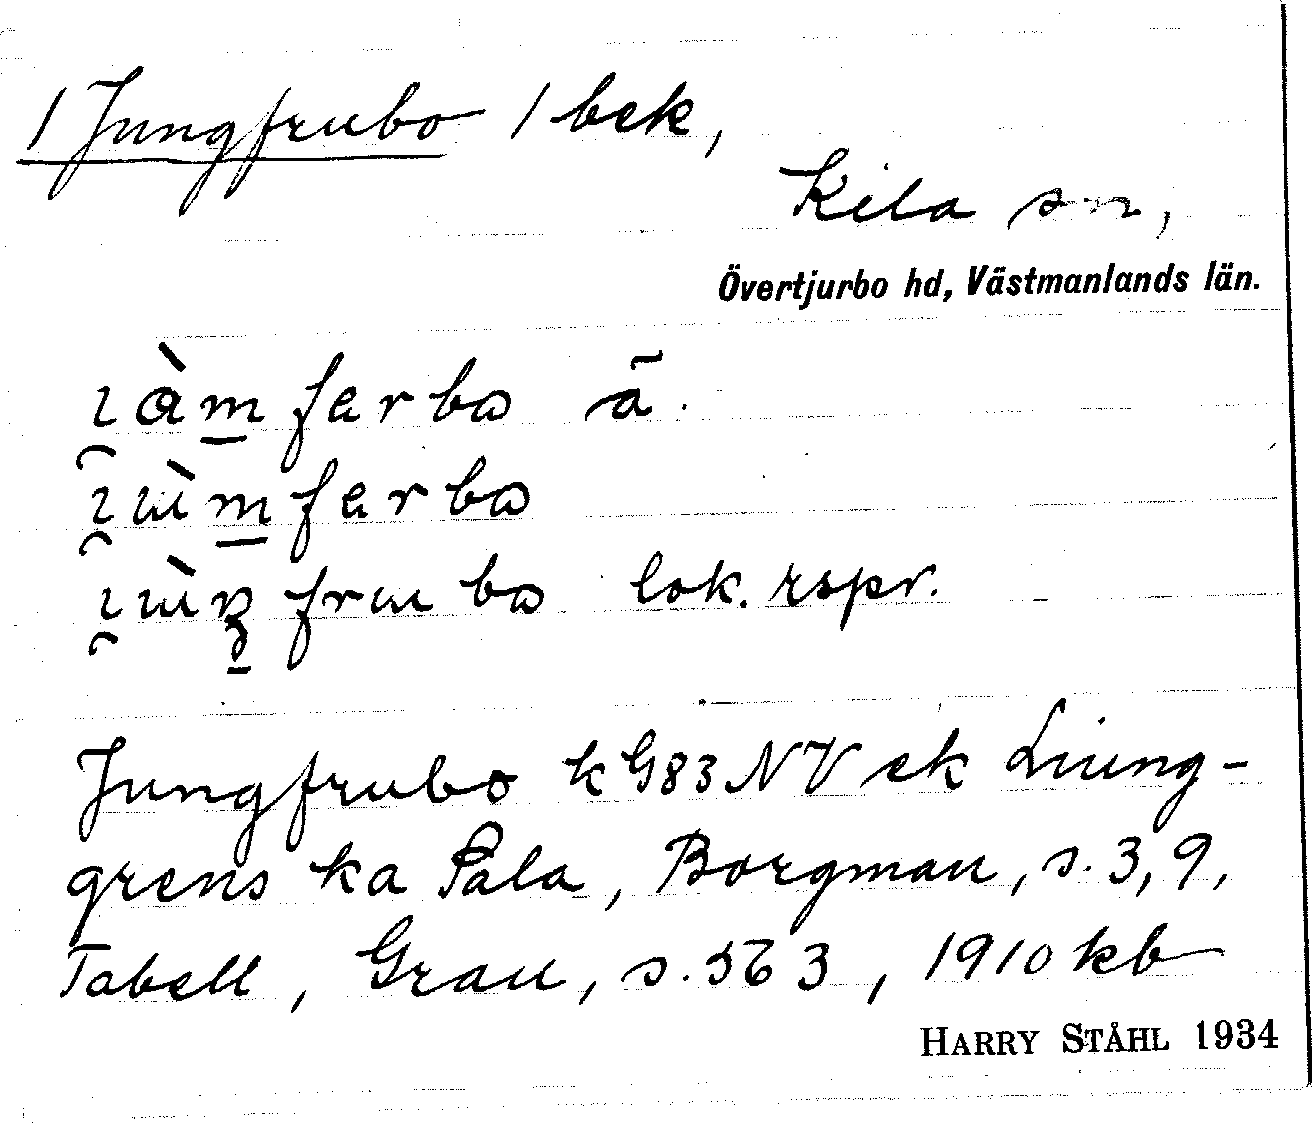 / Jungfrubo / bek,
Kila sn,
Övertjurbo hd, Västmanlands län.
ä.
lok. rspr.
Jungfrubo k G83 NV ek Liung-
grens ka Pala, Borgman, s. 3, 9,
Tabell, Grau, s. 563, 1910 kb
HARRY STÅHL 1934